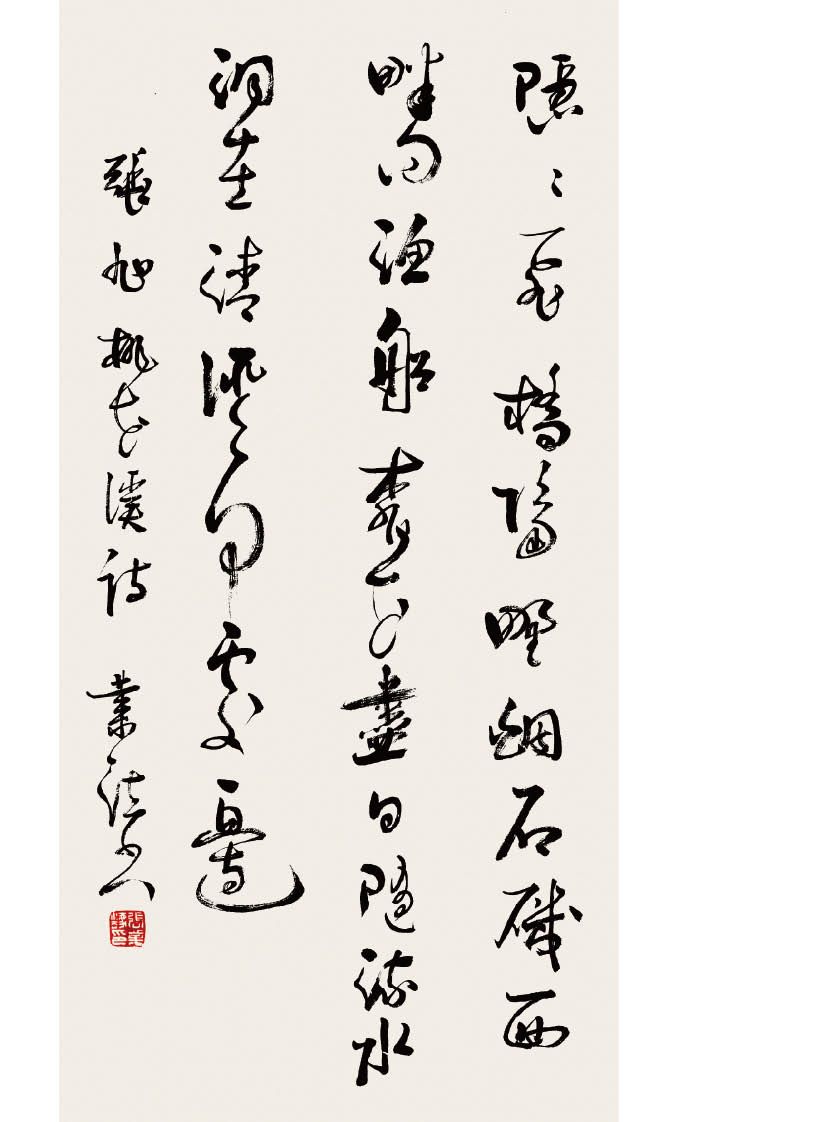 隱〻飛橋隔野烟石磯西
畔問漁船桃花盡日隨流水
洞在清溪何處邊
張旭桃花溪詩 業